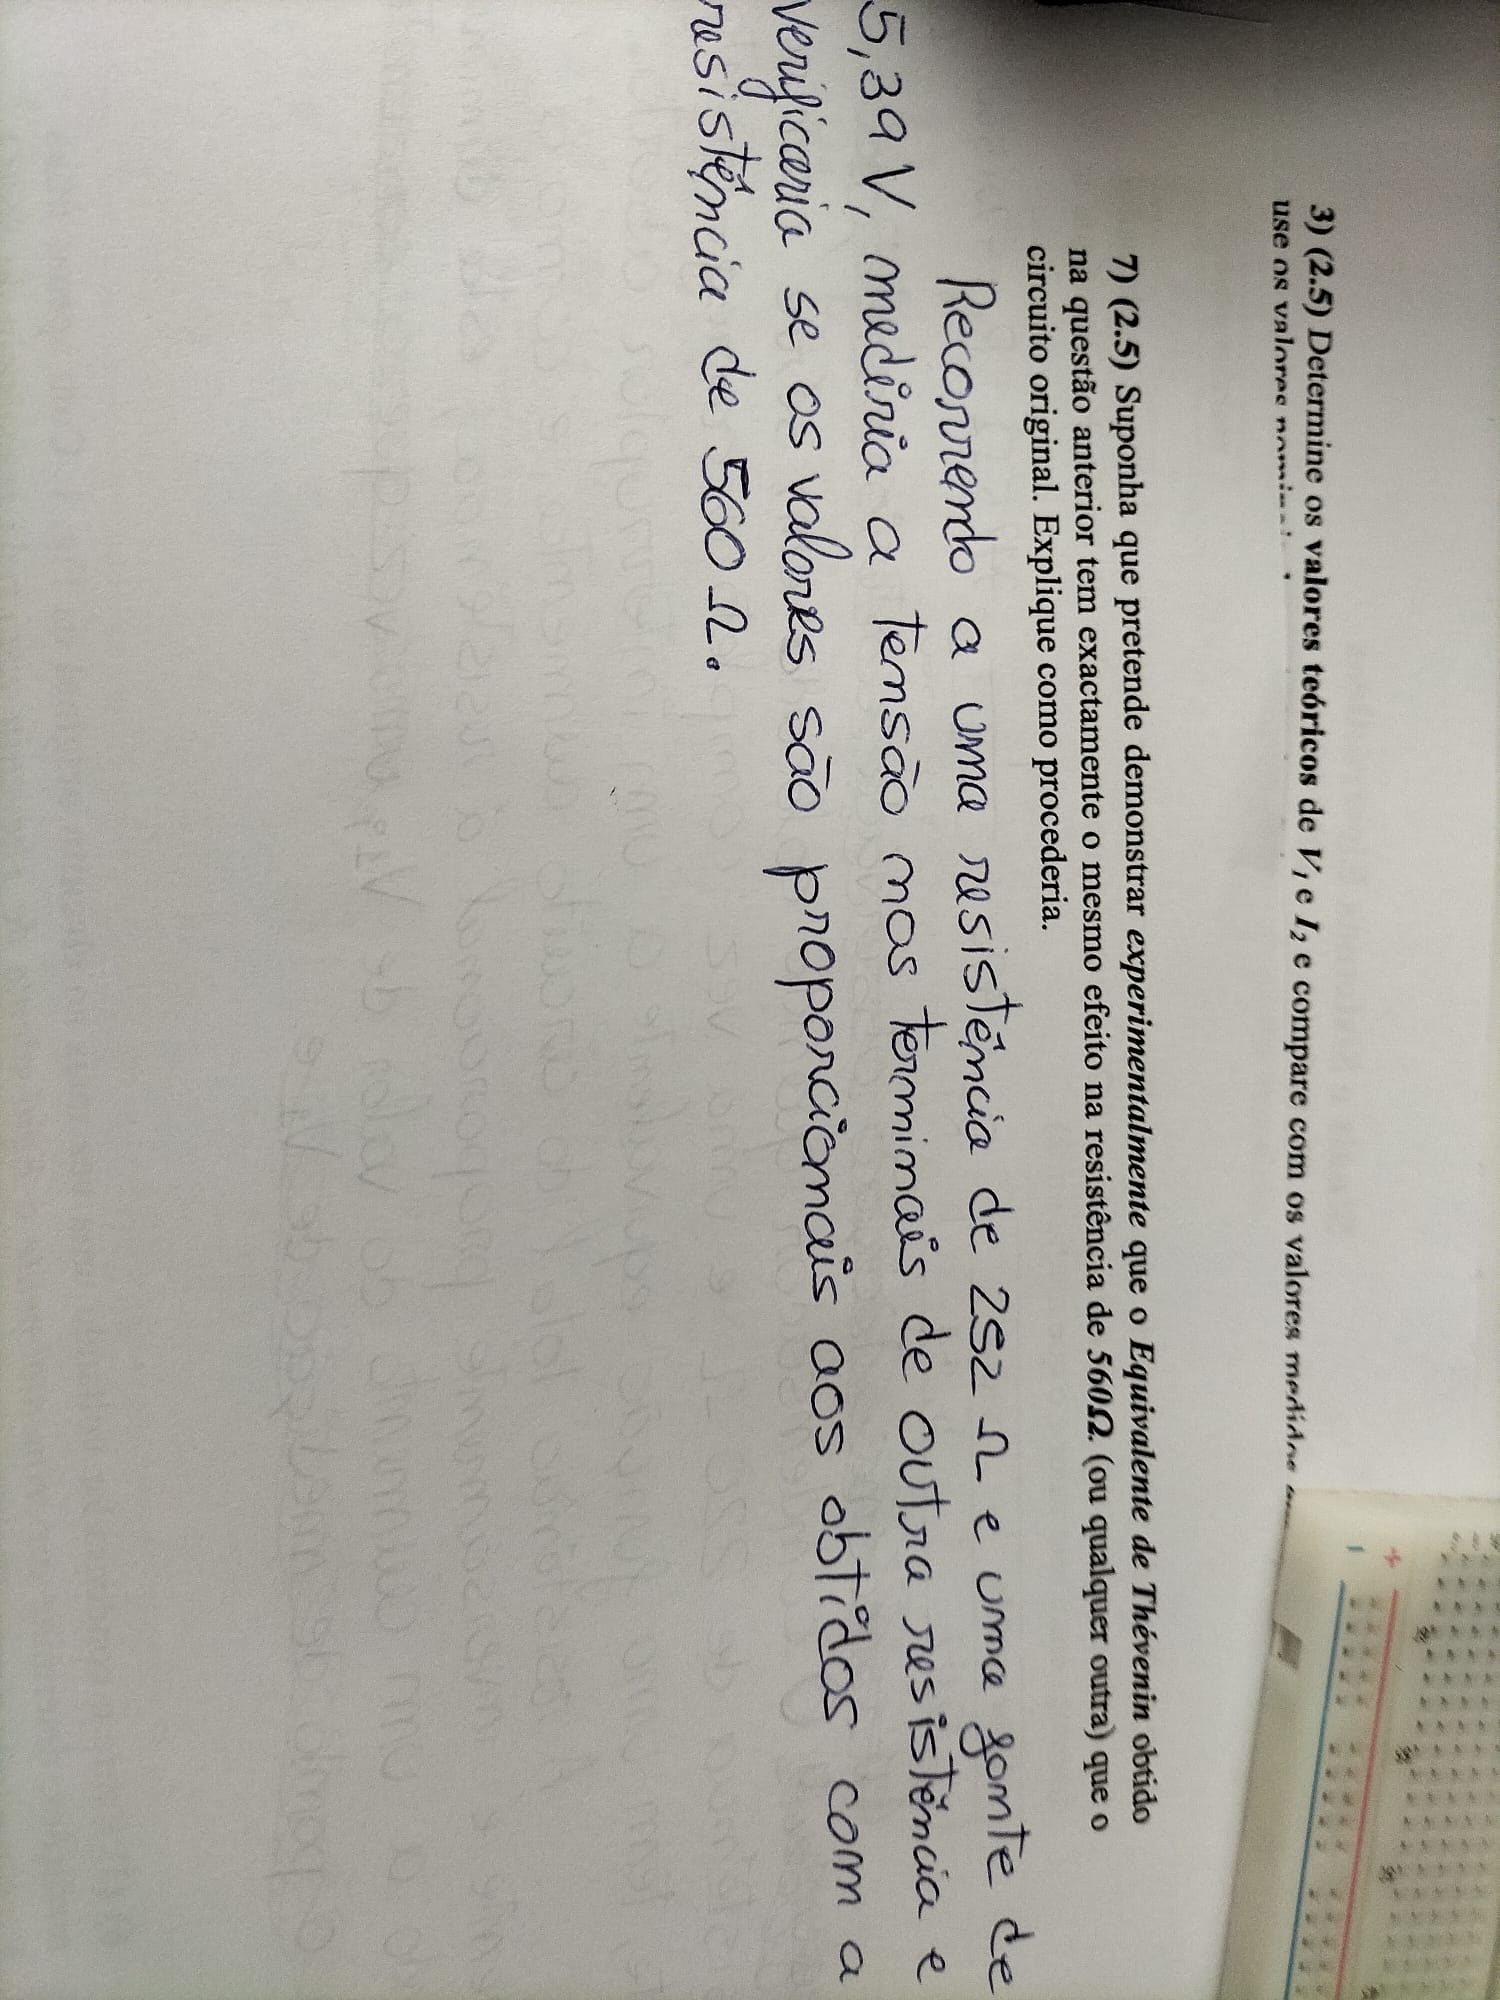 3) (2.5) Determine os valores teóricos de V₁ e I₂ e compare com os valores medidos
use os valores
7) (2.5) Suponha que pretende demonstrar experimentalmente que o Equivalente de Thévenin obtido
na questão anterior tem exactamente o mesmo efeito na resistência de 560Ω (ou qualquer outra) que o
circuito original. Explique como procederia.
Recorrendo a uma resistência de 252 Ω e uma fonte de
5,39 V, mediria a tensão nos terminais de outra resistência e
verificaria se os valores são proporcionais aos obtidos com a
resistência de 560 Ω.
+